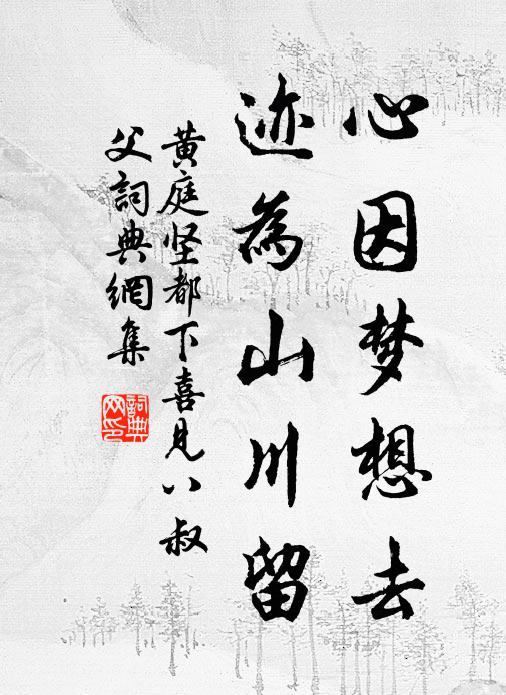 心因梦想去
迹為山川留
黄庭坚都下喜見八叔
父詞典網集
詞典
网印